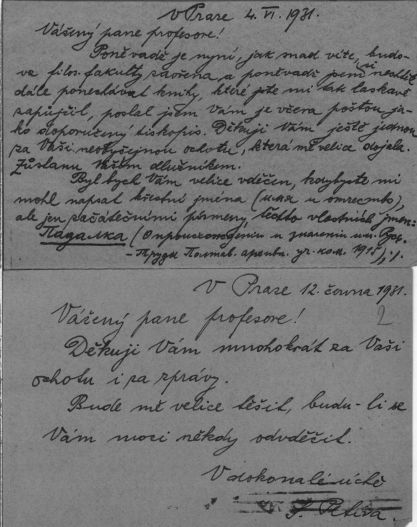 v Praze 4. VI. 1931.
Vážený pane profesore!
Poněvadž je nyní, jak snad víte, budo-
va filos. fakulty zavřena a poněvadž jsem
dále ponechávat knihy, které jste mi tak laskavě
zapůjčil, poslal jsem Vám je včera poštou ja-
ko doporučený tiskopis. Děkuji Vám ještě jednou
za Vaši neobyčejnou ochotu, která mě velice dojala.
Zůstanu Vaším dlužníkem.
Byl bych Vám velice vděčen, kdybyste mi
mohl napsat křestní jména (имя и отчество),
ale jen začátečními písmeny, těchto vlastních jmen:
Падалка (О происхождении и значении им. Русь,
- Труды Полтав. архивн. уч. ком. 1915,
V Praze 12. června 1931.
2
Vážený pane profesore!
Děkuji Vám mnohokrát za Vaši
ochotu i za zprávy.
Bude mě velice těšit, budu-li se
Vám moci někdy odvděčit.
V dokonalé úctě